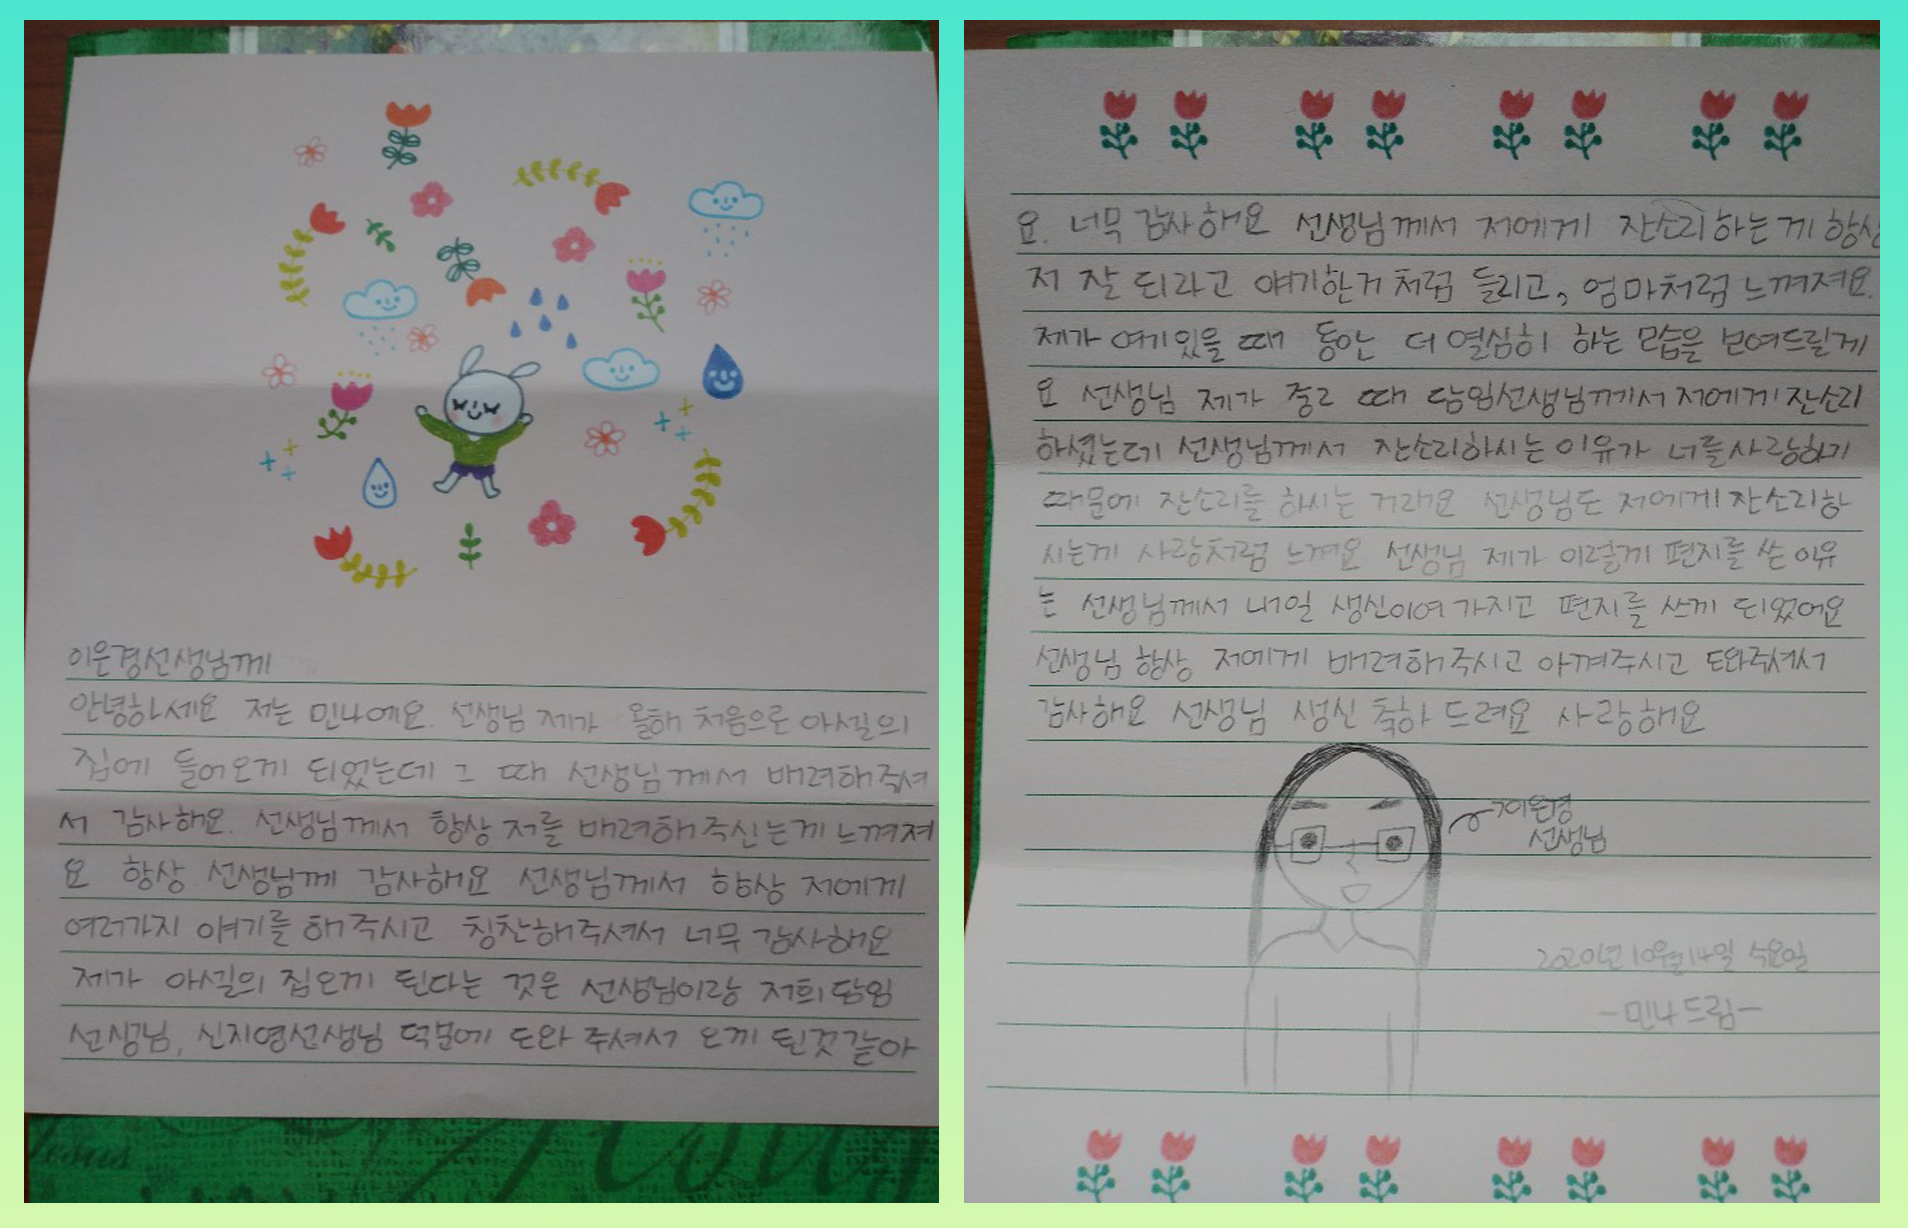 이은경선생님께
안녕하세요 저는 민나에요. 선생님 제가 올해 처음으로 아셀의
집에 들어오게 되었는데 그 때 선생님께서 배려해주셔
서 감사해요. 선생님께서 항상 저를 배려해주신는게 느껴져
요 항상 선생님께 감사해요 선생님께서 항상 저에게
여러가지 얘기를 해주시고 칭찬해주셔서 너무 감사해요
제가 아셀의 집오게 된다는 것은 선생님이랑 저희담임
선생님, 신지영선생님 덕분에 도와 주셔서 오게 된것같아
요. 너무 감사해요 선생님께서 저에게 잔소리하는게 항상
저 잘 되라고 얘기한거처럼 들리고, 엄마처럼 느껴져요.
제가 여기있을 때 동안 더 열심히 하는 모습을 보여드릴게
요 선생님 제가 중2 때 담임선생님께서 저에게 잔소리
하셨는데 선생님께서 잔소리하시는이유가 너를사랑하기
때문에 잔소리를 하시는 거래요 선생님도 저에게 잔소리하
시는게 사랑처럼 느껴요 선생님 제가 이렇게 편지를 쓴 이유
는 선생님께서 내일 생신이여가지고 편지를 쓰게 되었어요
선생님 항상 저에게 배려해주시고 아껴주시고 도와주셔서
감사해요 선생님 생신 축하 드려요 사랑해요
이은경
선생님
2020년 10월 14일 수요일
-민나드림-
Jesus